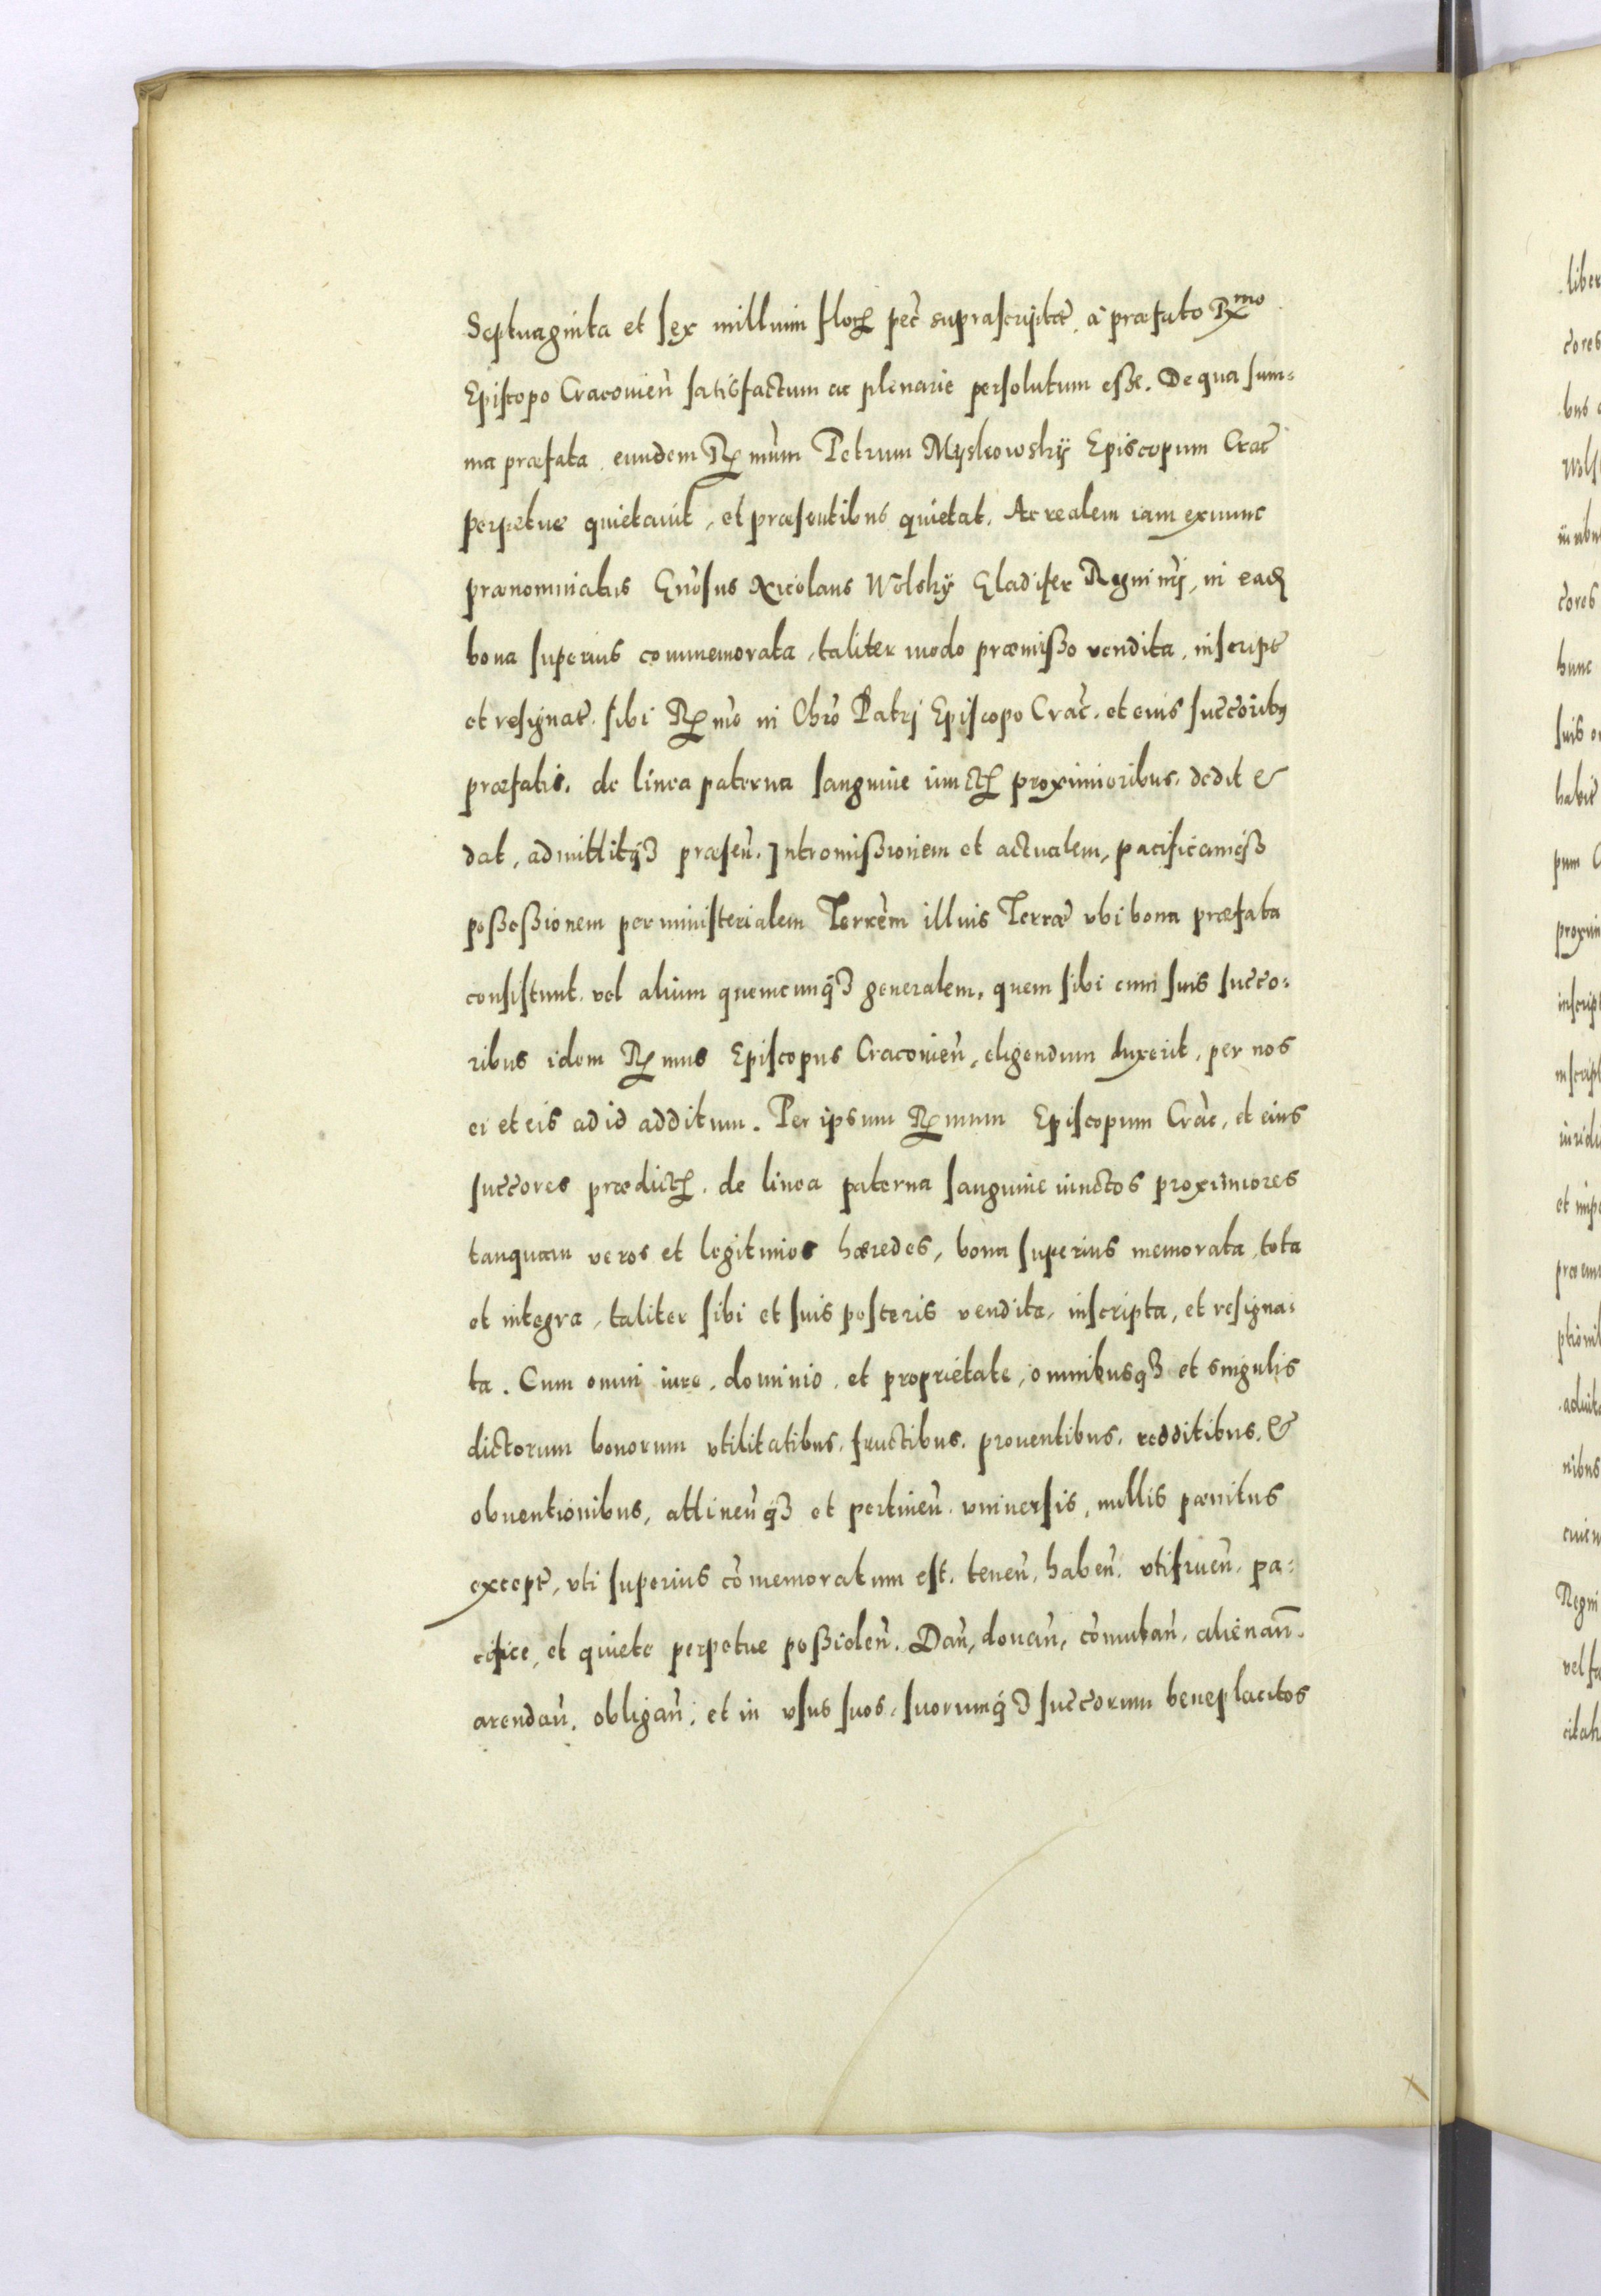 Septuaginta et sex millium floꝝ pec̃ suprascriptæ, à præfato Rᵐᵒ
Episcopo Cracovieñ satisfactum ac plenarie persolutum esse. De qua sum=
ma præfata eundem Rmum Petrum Myskowskÿ Episcopum Crac̃
perpetue quietavit, et præsentibus quietat. Ac realem iam exnunc
prænominatus Gñosus Nicolaus Wolskÿ Gladifer Regni nrĩ, in eadẽ
bona superius commemorata, taliter modo præmisso vendita, inscript̃
et resignat̃. sibi Rmo in Chrõ Patri Episcopo Crac̃. et eius succõribꝫ
præfatis. de linea paterna sanguine iunctꝭ proximioribus. dedit &
dat, admittitqꝫ præseñ. Intromissionem et actualem, pacificamqꝫ
possessionem per ministerialem Terrem̃ illius Terræ ubi bona præfata
consistunt. vel alium quemcunqꝫ generalem, quem sibi cum suis succo=
ribus idem Rmus Episcopus Cracovieñ, eligendum duxerit, per nos
ei et eis ad id additum. Per ipsum Rmum Episcopum Crac̃, et eius
succores prædictꝭ. de linea paterna sanguine iunctos proximiores
tanquam veros et legitimos hæredes, bona superius memorata, tota
et integra, taliter sibi et suis posteris vendita, inscripta, et resigna=
ta. Cum omni iure, dominio, et proprietate, omnibusqꝫ et singulis
dictorum bonorum utilitatibus, fructibus, proventibus, redditibus, &
obventionibus, attineñqꝫ et pertineñ. universis, nullis pænitus
except̃, uti superius cõmemoratum est. teneñ, habeñ. utifrueñ. pa=
cifice, et quiete perpetue possideñ. Dañ, donañ, cõmutañ, alienañ.
arendañ. obligañ. et in usus suos, suorumqꝫ succorum beneplacitos